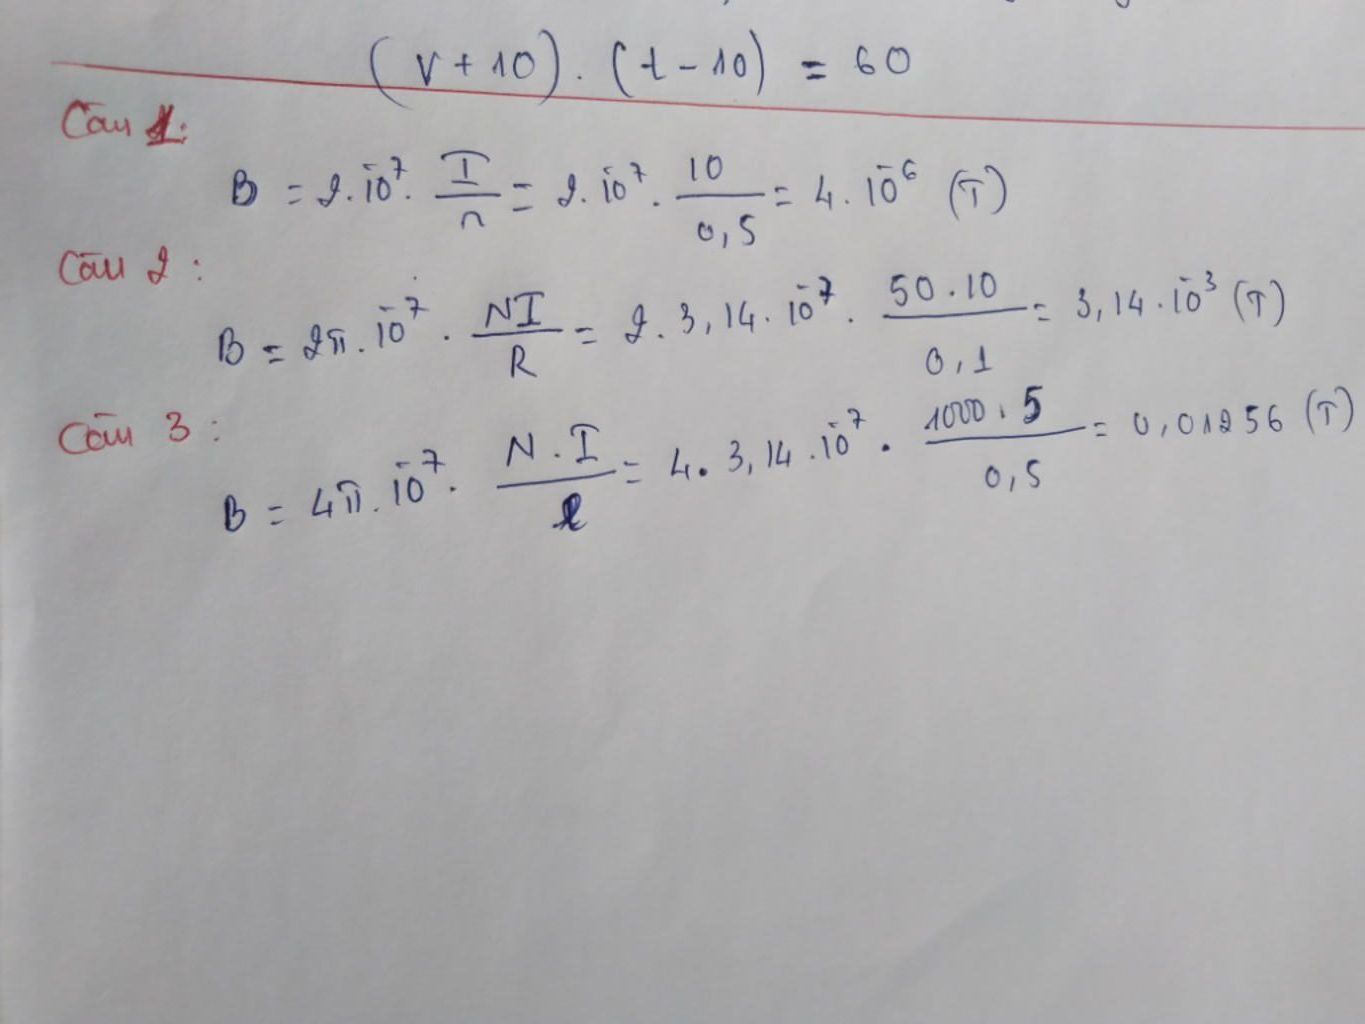 (v + 10) . (t - 10) = 60
Câu 1:
B = 2.10⁻⁷. I/r = 2.10⁻⁷ . 10/0,5 = 4.10⁻⁶ (T)
Câu 2:
B = 2π.10⁻⁷ . NI/R = 2.3,14.10⁻⁷ . 50.10/0,1 = 3,14.10⁻³ (T)
Câu 3:
B = 4π.10⁻⁷. N.I/l = 4.3,14.10⁻⁷ . 1000.5/0,5 = 0,01256 (T)